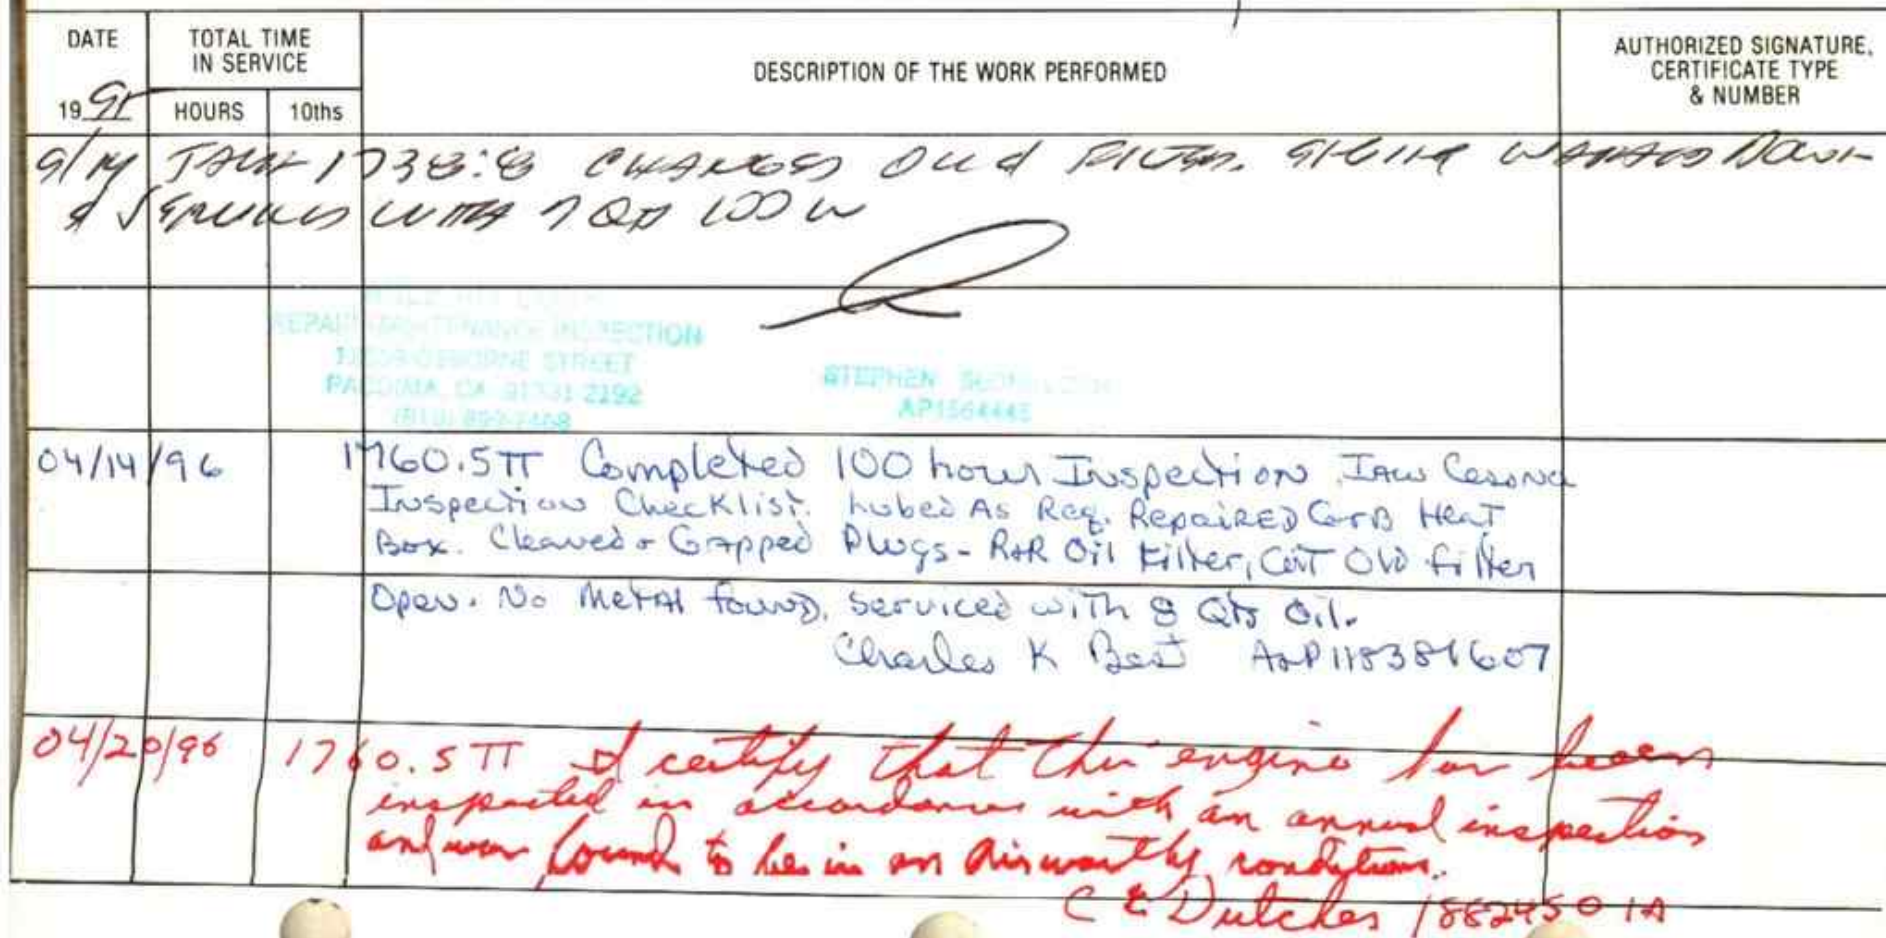 DATE
TOTAL TIME
IN SERVICE
DESCRIPTION OF THE WORK PERFORMED
AUTHORIZED SIGNATURE,
CERTIFICATE TYPE
& NUMBER
1995
HOURS
10ths
9/14 1738.8 CHANGED OIL & FILTER. WASHED DOWN
& SERVICED WITH 7 QTS 100W
REPAIR MAINTENANCE INSPECTION
OSBORNE STREET
PACOIMA, CA 91331-2192
STEPHEN
AP1564445
04/14/96 1760.5TT Completed 100 hour Inspection IAW Cessna
Inspection Checklist. Lubed As Req. Repaired Carb Heat
Box. Cleaned & Gapped Plugs - R&R Oil Filter, Cut Old filter
Open. No Metal found. Serviced with 8 Qts Oil.
Charles K Best A&P
04/20/96 1760.5 TT I certify that this engine has been
inspected in accordance with an annual inspection
and was found to be in an Airworthy condition.
C E Dutcher 1882450 IA